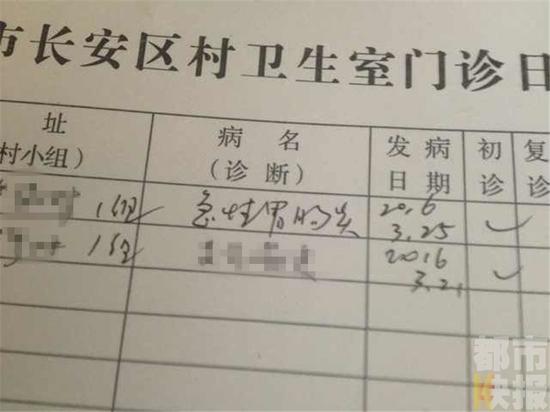 市长安区村卫生室门诊日
址 病名 发病 初 复
村小组) (诊断) 日期 诊 诊
1组 急性胃肠炎 2016 3.25 ✓
1组 2016 3.21 ✓
都市快报